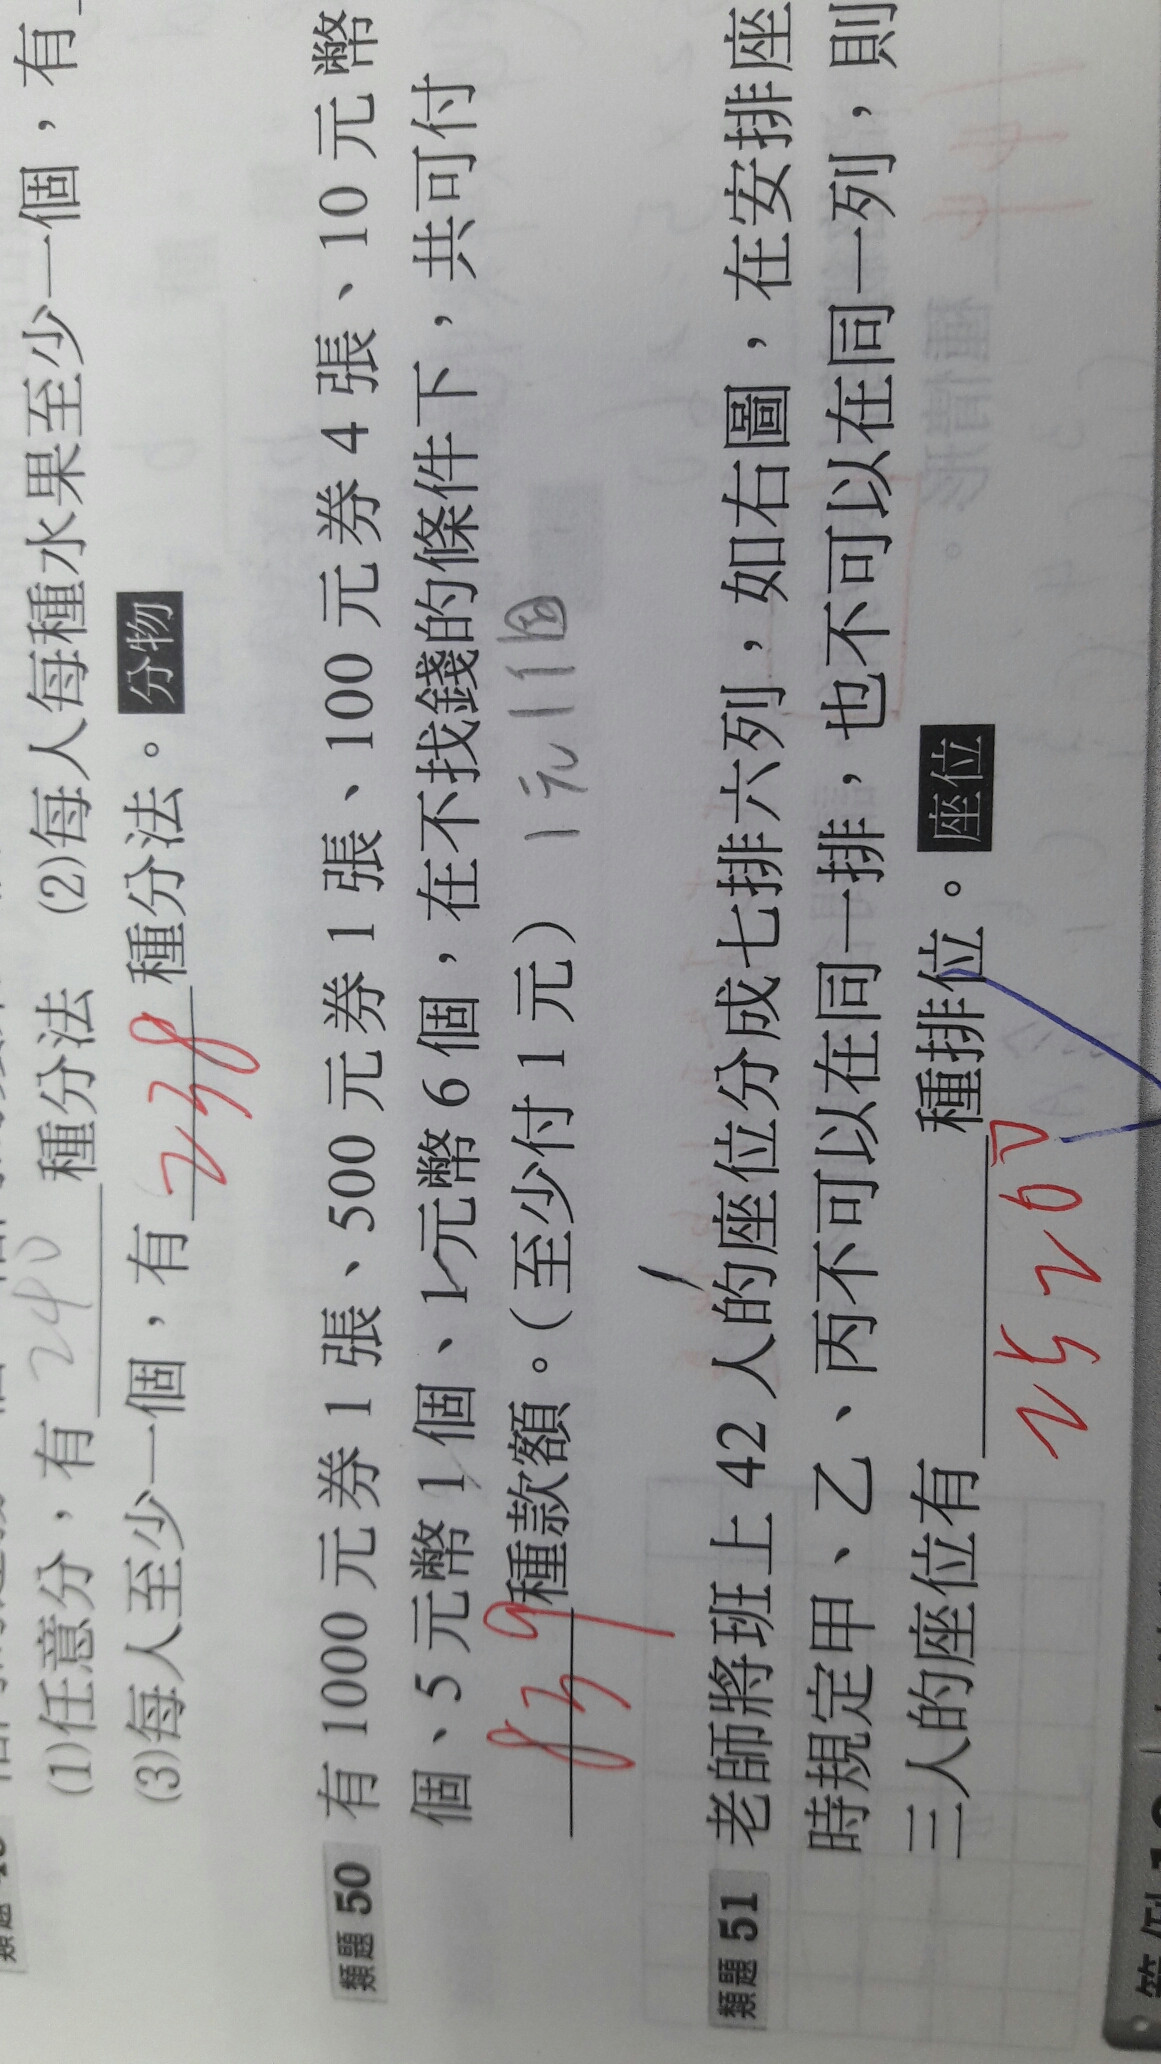 (1)任意分，有 240 種分法 (2)每人每種水果至少一個，有
(3)每人至少一個，有 238 種分法。 分物
類題 50 有 1000 元券 1 張、500 元券 1 張、100 元券 4 張、10 元幣
個、5 元幣 1 個、1 元幣 6 個，在不找錢的條件下，共可付
839 種款額。（至少付 1 元） 1元11個
類題 51 老師將班上 42 人的座位分成七排六列，如右圖，在安排座
時規定甲、乙、丙不可以在同一排，也不可以在同一列，則
三人的座位有 種排位。 座位
2520